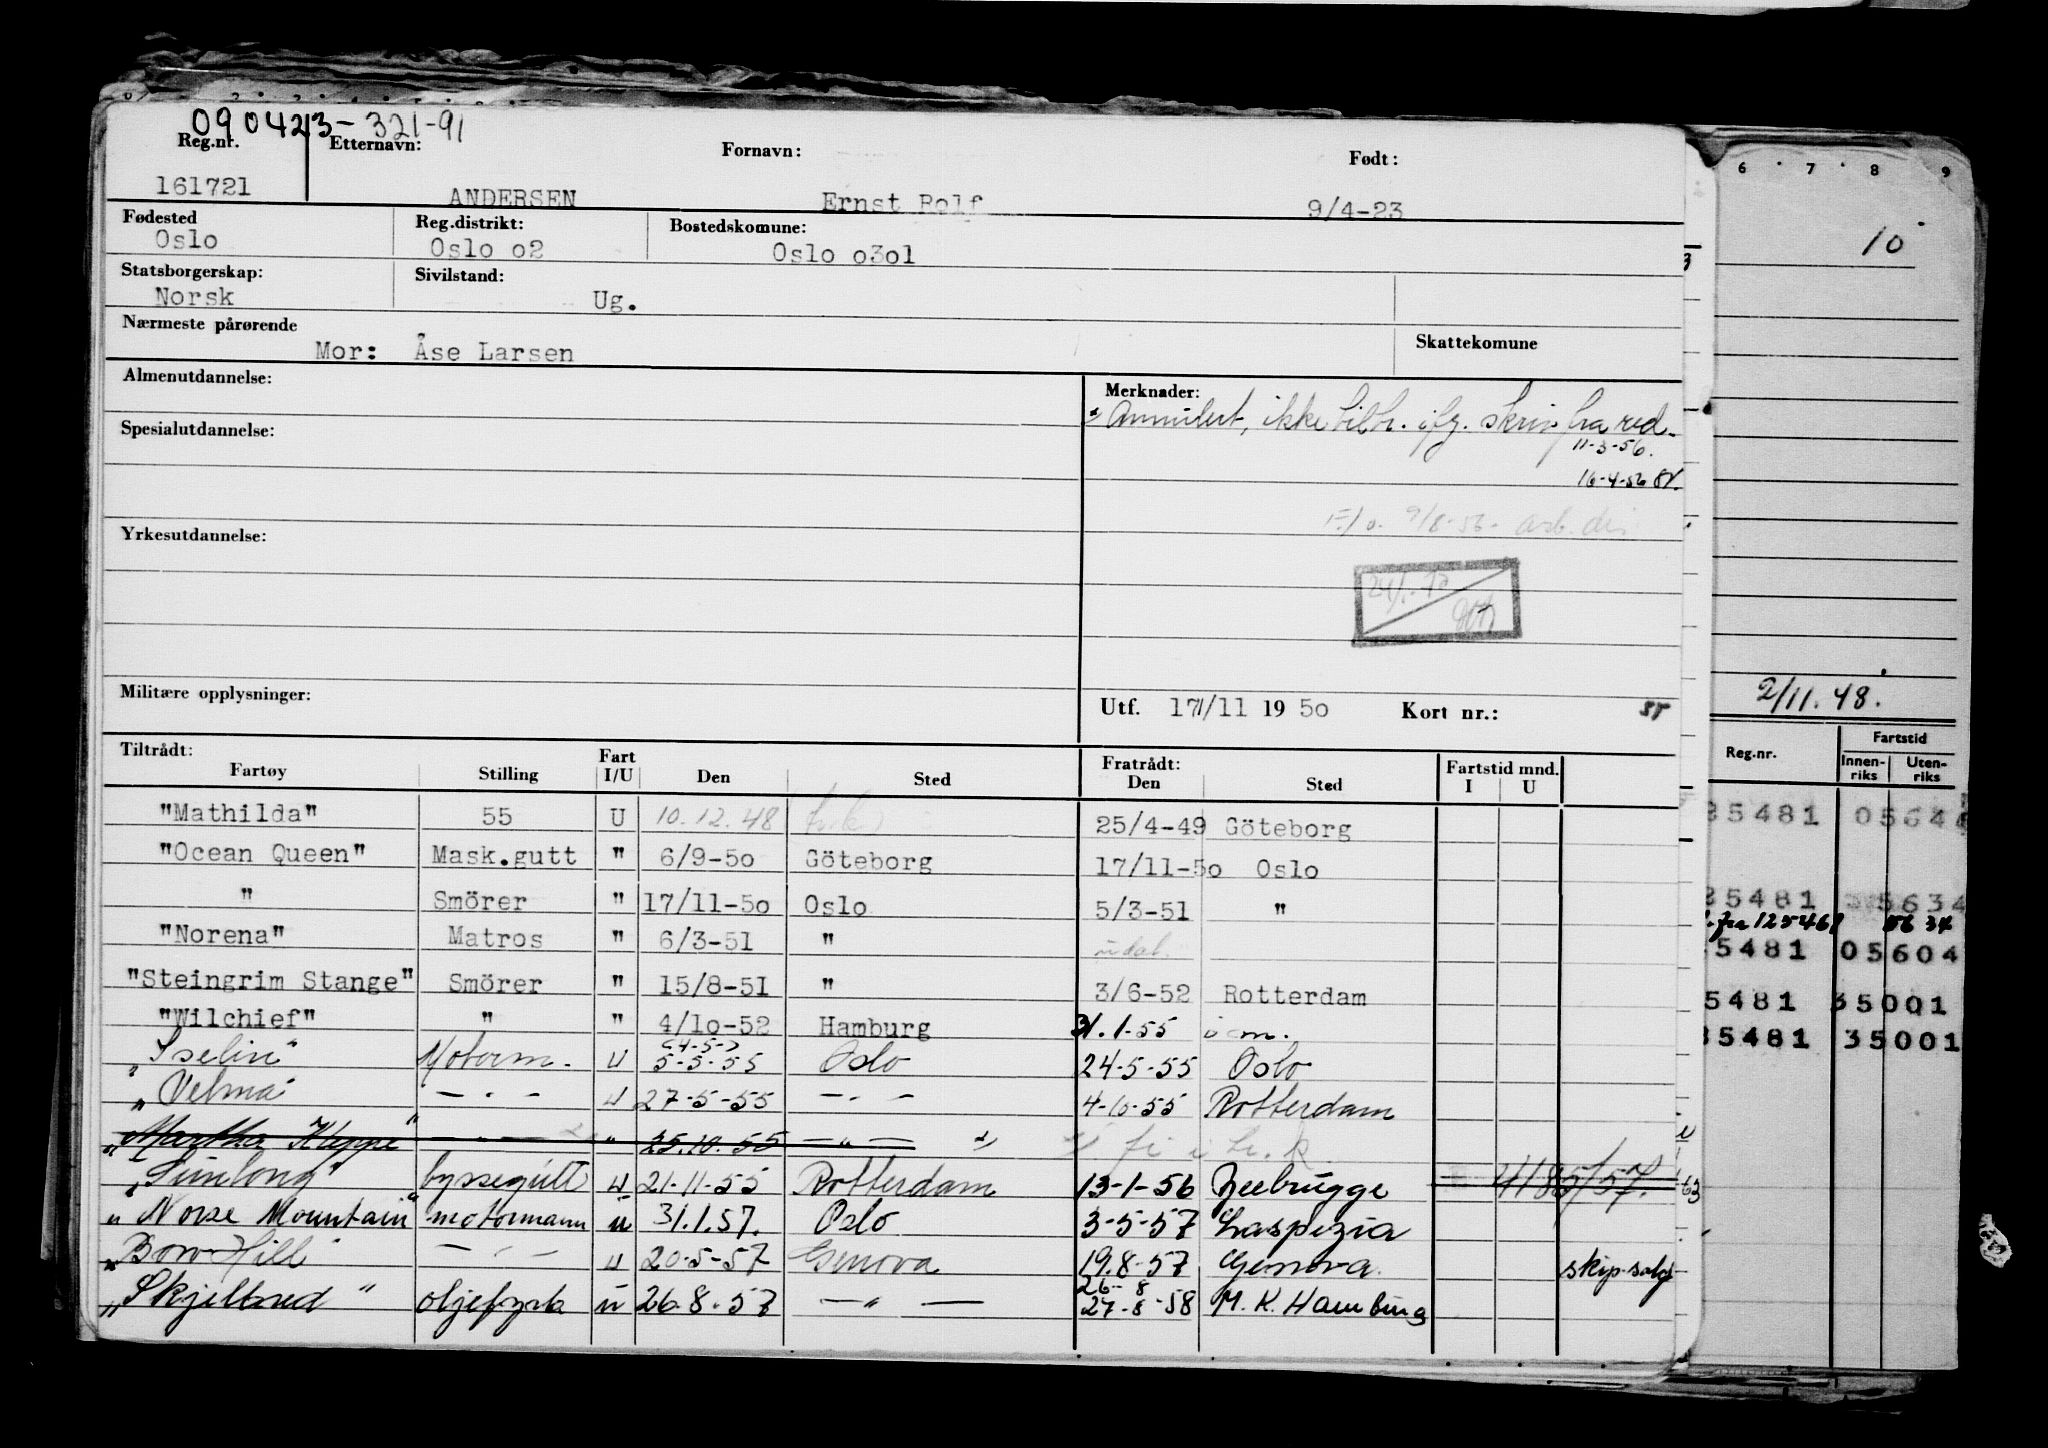 090423-321-91
Reg.nr. Etternavn: Fornavn: Født:
161721 ANDERSEN Ernst Rolf 9/4-23
Fødested Reg.distrikt: Bostedskomune:
Oslo Oslo o2 Oslo o3o1
Statsborgerskap: Sivilstand:
Norsk Ug.
Nærmeste pårørende Skattekomune
Mor: Åse Larsen
Almenutdannelse: Merknader:
Annulert, ikke tiltr. ifg. skriv fra red.
11-3-56.
Spesialutdannelse:
16-4-56
9/8-56-
Yrkesutdannelse:
Militære opplysninger: Utf. 17/11 19 5o Kort nr.:
Tiltrådt: Fart Fratrådt: Fartstid mnd.
Fartøy Stilling I/U Den Sted Den Sted I U
"Mathilda" 55 U 10.12.48 25/4-49 Göteborg
"Ocean Queen" Mask.gutt " 6/9-5o Göteborg 17/11-5o Oslo
" Smörer " 17/11-5o Oslo 5/3-51 "
"Norena" Matros " 6/3-51 "
"Steingrim Stange" Smörer " 15/8-51 " 3/6-52 Rotterdam
"Wilchief" " " 4/1o-52 Hamburg 31.1-55
"Iselin" Motorm. U 5-5-55 Oslo 24-5-55 Oslo
"Velma" — " — U 27-5-55 — " — 4-10-55 Rotterdam
"Martha Kleppe" — " — " 25.10.55 — " —
"Sunlong" byssegutt U 21-11-55 Rotterdam 13-1-56 Zeebrugge
"Norse Mountain" motormann u 31.1.57. Oslo 3-5-57 Laspezia
"Bow Hill" — " — U 20-5-57 Genova 19.8-57 Genova. skip solgt
"Skjelbred" oljefyrb u 26.8.57 — " — 27-8-58 M.K. Hamburg
26- 8
6 7 8 9
10
2/11.48.
Reg.nr. Fartstid
Innenriks Utenriks
5481 0564
5481 5634
fra 125461
5481 05604
5481 35001
5481 35001